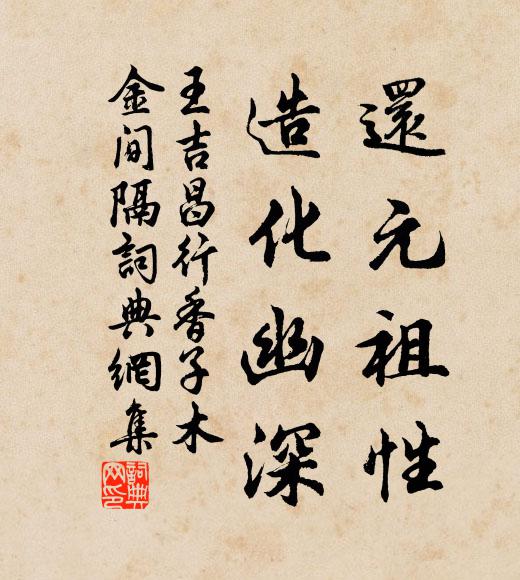 還元祖性
造化幽深
王吉昌行香子木
金间隔詞典網集
詞典
网印